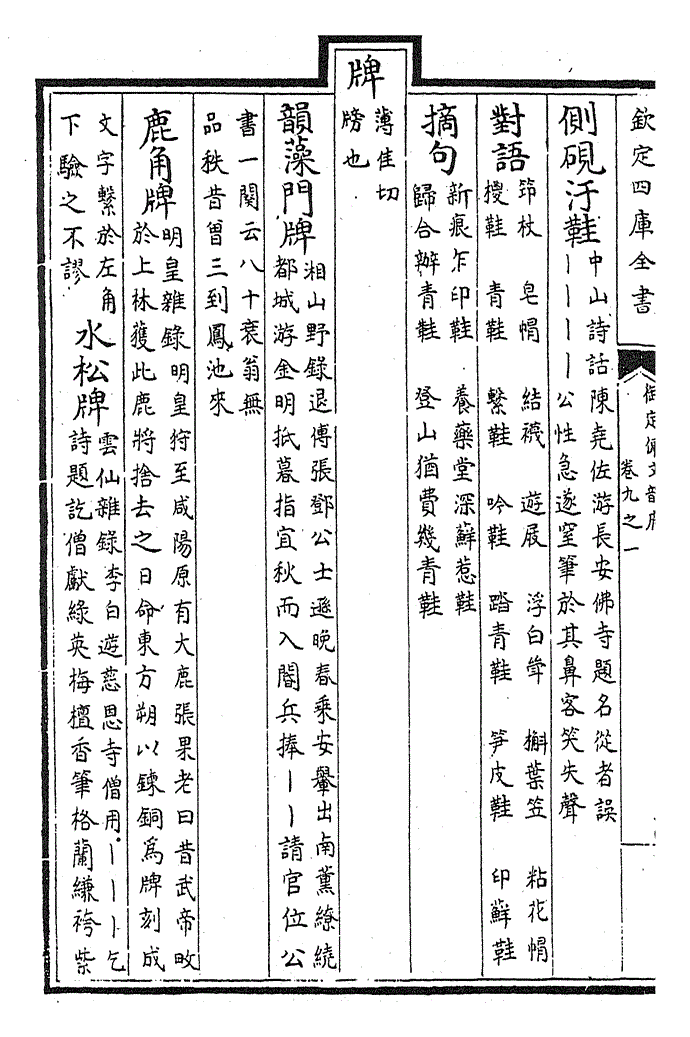 欽定四庫全書
御定佩文韻府
卷九之一
側硯汙鞋
中山詩話陳堯佐游長安佛寺題名從者誤
丨丨丨丨公性急遂窒筆於其鼻客笑失聲
對語
筇杖　皂帽　結襪　遊屐　浮白斝　槲葉笠　粘花帽
椶鞋　青鞋　繫鞋　吟鞋　踏青鞋　笋皮鞋　印蘚鞋
摘句
新痕乍印鞋　養藥堂深蘚惹鞋
歸合辦青鞋　登山猶費幾青鞋
牌
薄佳切
牓也
韻藻
門牌
湘山野錄退傅張鄧公士遜晚春乘安轝出南薰繚繞
都城游金明抵暮指宜秋而入閽兵捧丨丨請官位公
書一闋云八十衰翁無
品秩昔曾三到鳳池來
鹿角牌
明皇雜錄明皇狩至咸陽原有大鹿張果老曰昔武帝畋
於上林獲此鹿將捨去之日命東方朔以鍊銅爲牌刻成
文字繫於左角
下驗之不謬
水松牌
雲仙雜錄李白遊慈恩寺僧用丨丨丨乞
詩題訖僧獻綠英梅檀香筆格蘭縑袴柴